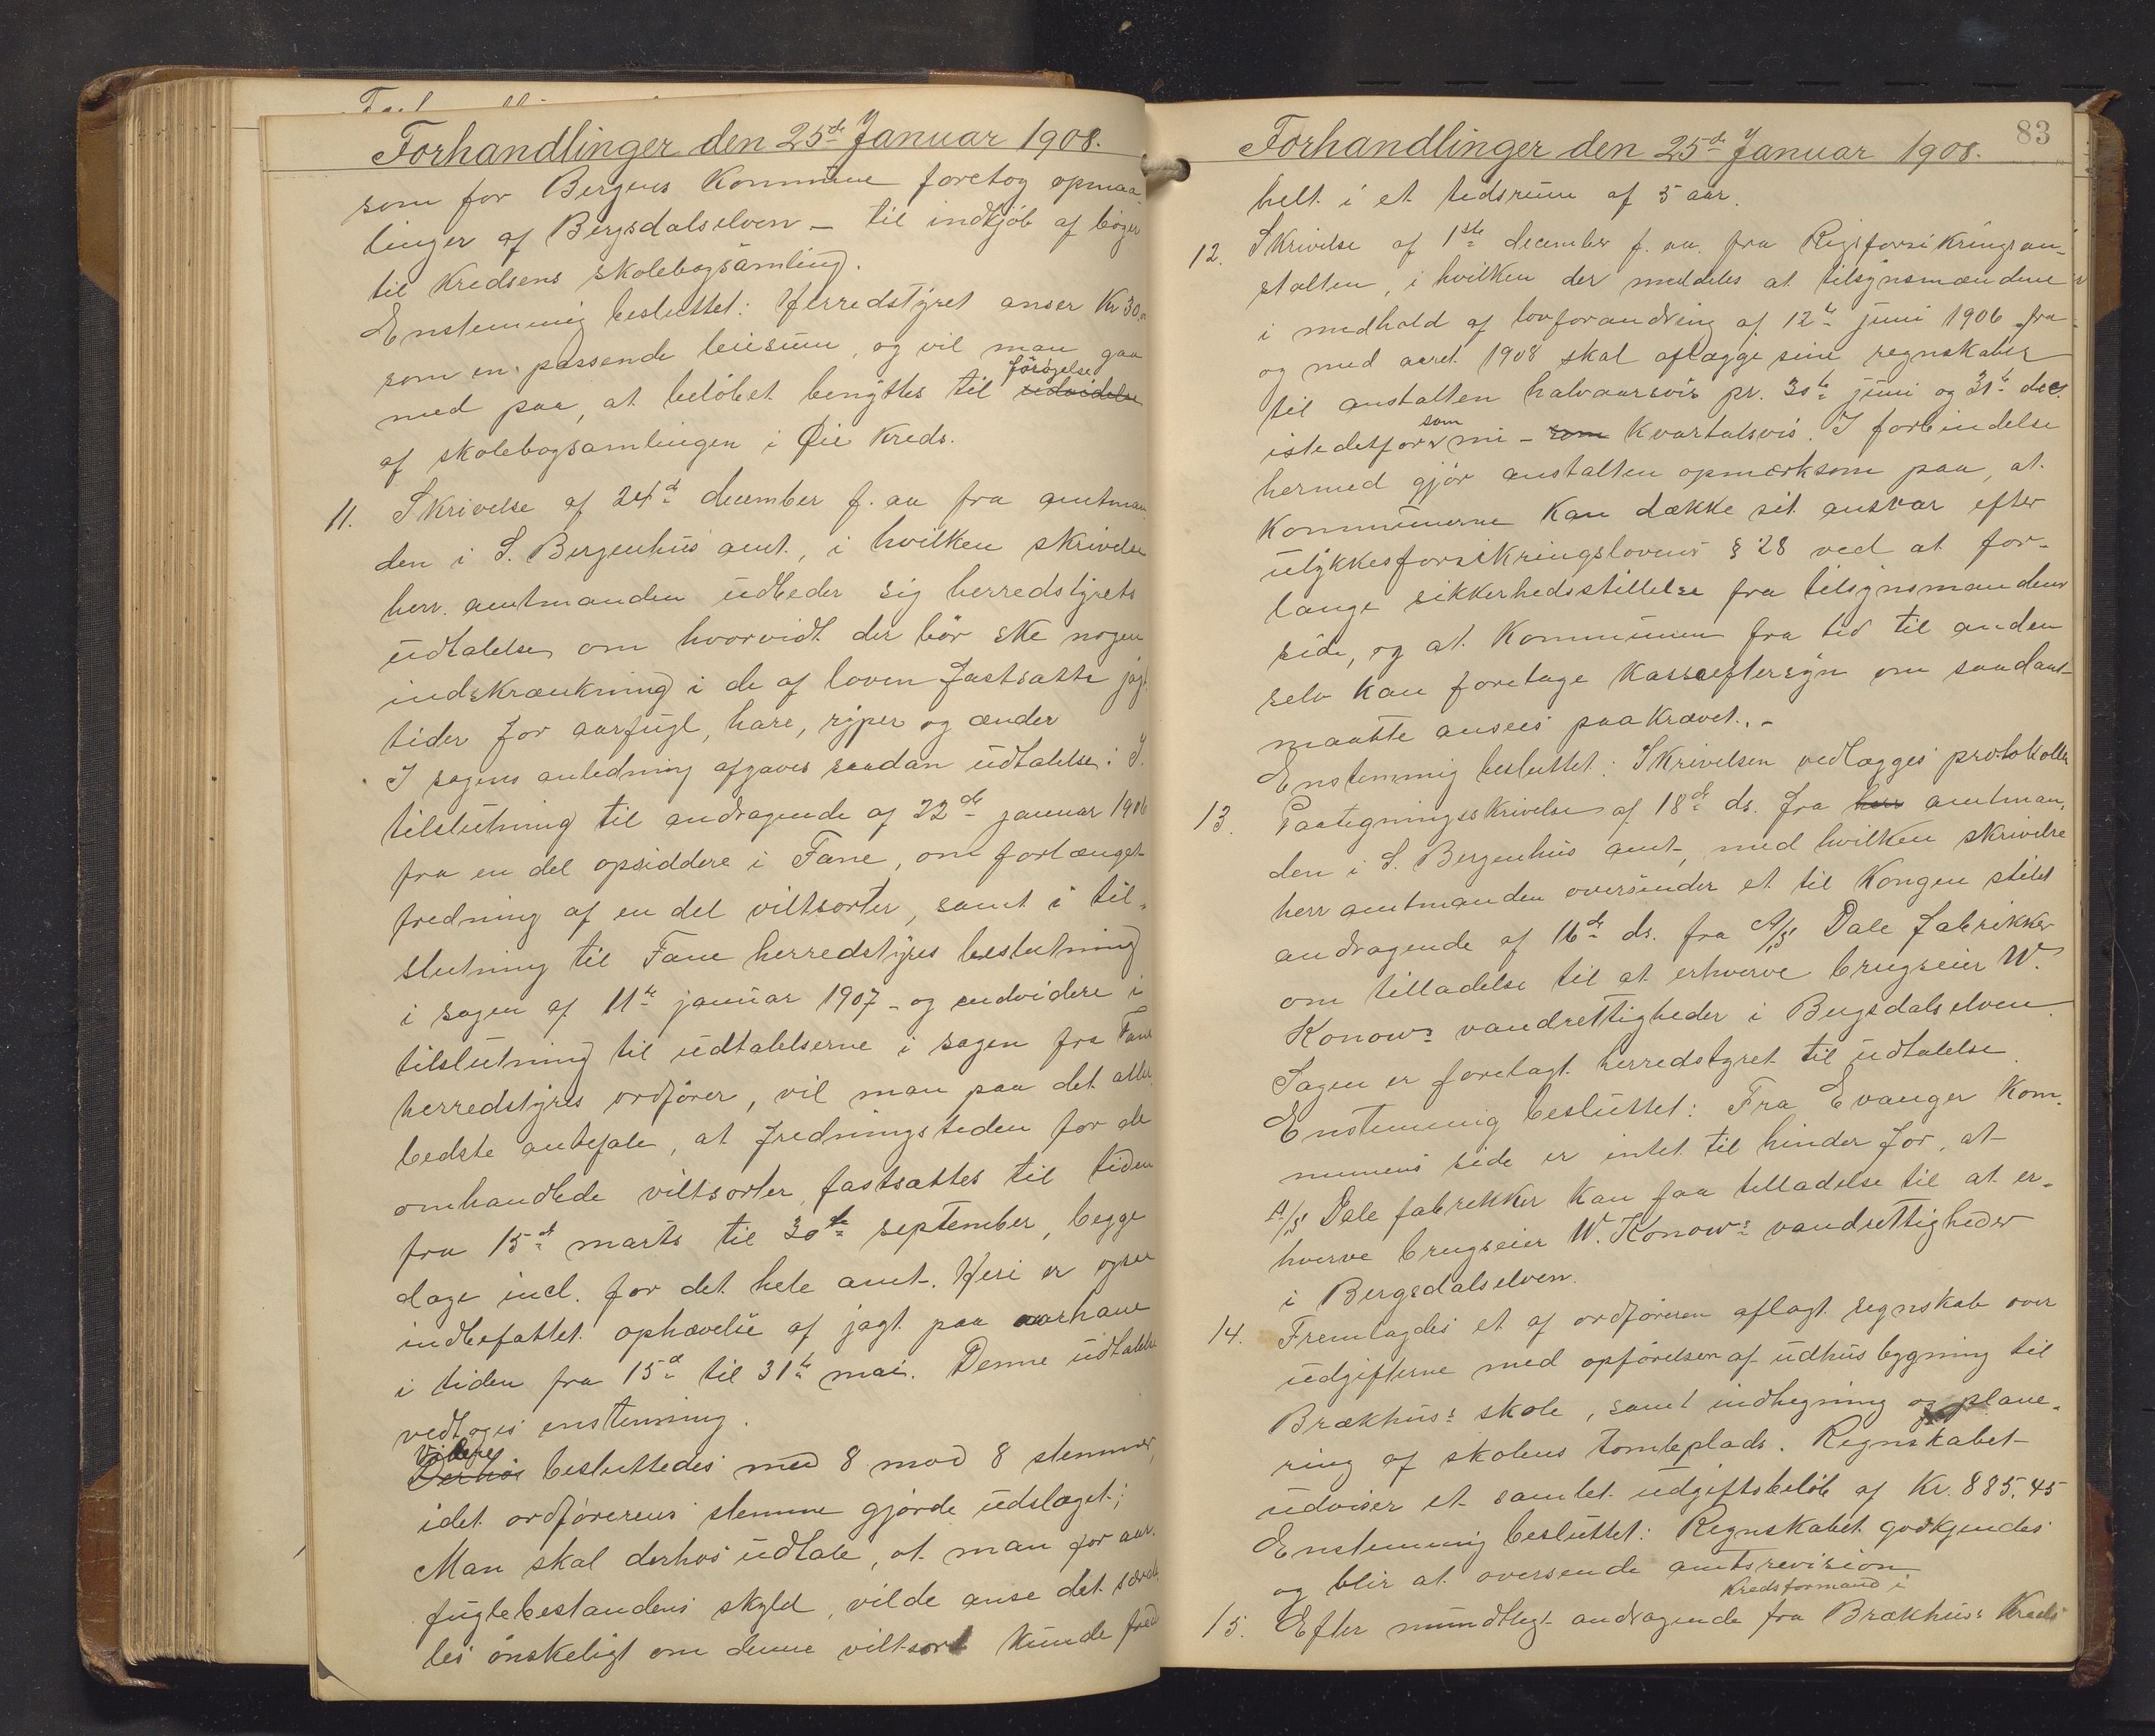 Forhandlinger den 25de Januar 1908.
som for Bergens Kommune foretog opmaa-
linger af Bergsdalselven - til indkjöb af böger
til Kredsens skolebogsamling.
Enstemmig besluttet: Herredstyret anser Kr 30,00
som en passende leiesum, og vil man gaa
med paa, at belöbet benyttes til udvidelse forögelse
af skolebogsamlingen i Öie Kreds.
11. Skrivelse af 24de december f. aa fra amtman-
den i S. Bergenhus amt, i hvilken skrivelse
herr. amtmanden udbeder sig herredstyrets
udtalelse om hvorvidt der bör ske nogen
indskrænkning i de af loven fastsatte jagt
tider for aarfugl, hare, ryper og ænder
I sagens anledning afgaves saadan udtalelse: I
tilslutning til andragende af 22de januar 1906
fra en del opsiddere i Fane, om forlænget
fredning af en del viltsorter, samt i til-
slutning til Fane herredstyres beslutning
i sagen af 11te januar 1907 - og endvidere i
tilslutning til udtalelserne i sagen fra Fane
herredstyres ordförer, vil man paa det aller
bedste anbefale, at fredningstiden for de
omhandlede viltsorter, fastsættes til tiden
fra 15de marts til 30te september, begge
dage incl. for det hele amt. Heri er ogsaa
indbefattet ophævelse af jagt paa aarhane
i tiden fra 15de til 31te mai. Denne udtalelse
vedtoges enstemmig.
Derhos Videre besluttedes med 8 mod 8 stemmer,
idet ordförerens stemme gjorde udslaget;
Man skal derhos udtale, at man for aar-
fuglebestandens skyld, vilde anse det særde-
les önskeligt om denne viltsort kunde fred
83
Forhandlinger den 25de Januar 1908.
helt i et tidsrum af 5 aar.
12. Skrivelse af 1ste december f. aa. fra Rigsforsikringsan-
stalten, i hvilken der meddeles at tilsynsmændene
i medhold af lovforandring af 12te juni 1906 fra
og med aaret 1908 skal aflægge sine regnskaber
til anstalten halvaarsvis pr. 30te juni og 31te dec.
istedetfor som nu - som Kvartalsvis. I forbindelse
hermed gjör anstalten opmærksom paa, at
Kommunerne Kan dække sit ansvar efter
ulykkesforsikringslovens § 28 ved at for-
lange sikkerhedsstillelse fra tilsynsmandens
side, og at Kommunen fra tid til anden
selv kan foretage Kasseeftersyn om saadant
maatte ansees paakrævet. -
Enstemmig besluttet: Skrivelsen vedlægges protokollen
13. Paategningsskrivelse af 18de ds. fra herr amtman-
den i S. Bergenhus amt, med hvilken skrivelse
herr amtmanden oversender et til Kongen stilet
andragende af 16de ds. fra A/S Dale fabrikker
om tilladelse til at erhverve brugseier W.
Konows vandrettigheder i Bergsdalselven.
Sagen er forelagt herredstyret til udtalelse.
Enstemmig besluttet: Fra Evanger Kom-
munens side er intet til hinder for, at
A/S Dale fabrikker Kan faa tilladelse til at er-
hverve brugseier W. Konows vandrettigheder
i Bergsdalselven.
14. Fremlagdes et af ordföreren aflagt regnskab over
udgifterne med opförelsen af udhusbygning til
Brækhus's skole, samt indhegning og plane-
ring af skolens tomteplads. Regnskabet
udviser et samlet udgiftsbelöb af Kr. 885,45
Enstemmig besluttet: Regnskabet godkjendes
og blir at oversende amtsrevision
15. Efter mundtligt andragende fra Kredsformand i Brækhus Kreds